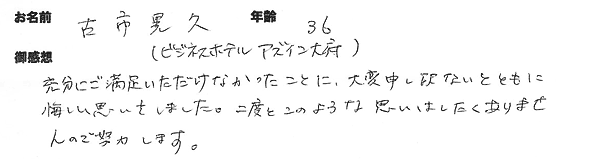 お名前 古市晃久 年齢 36
御感想 (ビジネスホテル アズイン大府)
充分にご満足いただけなかったことに、大変申し訳ないとともに
悔しい思いをしました。二度とこのような思いはしたくありませ
んので努力します。